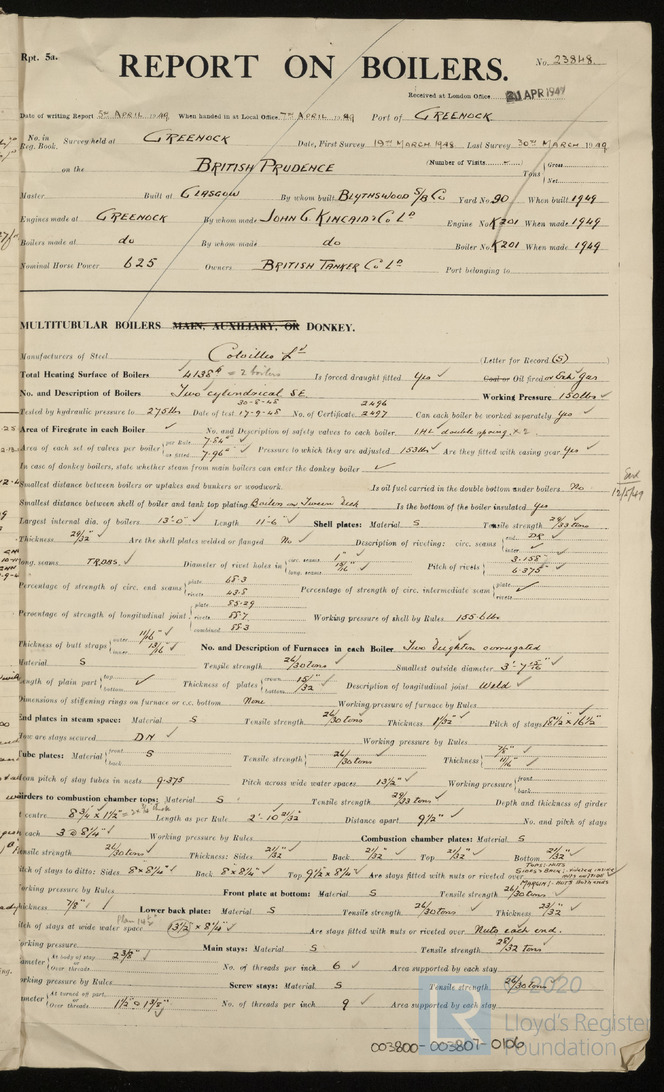 Rpt. 5a.
REPORT ON BOILERS.
No. 23848
Received at London Office 21 APR 1949
Date of writing Report 5TH APRIL 1949 When handed in at Local Office 7TH APRIL 1949 Port of GREENOCK
No. in Reg. Book. Survey held at GREENOCK Date, First Survey 19TH MARCH 1948 Last Survey 30TH MARCH 1949
on the BRITISH PRUDENCE (Number of Visits ) Tons Gross Net
Master Built at GLASGOW By whom built BLYTHSWOOD S/B Co Yard No. 90 When built 1949
Engines made at GREENOCK By whom made JOHN G. KINCAID & CO LD Engine No. K201 When made 1949
Boilers made at do By whom made do Boiler No. K201 When made 1949
Nominal Horse Power 625 Owners BRITISH TANKER CO LD Port belonging to
MULTITUBULAR BOILERS MAIN, AUXILIARY, OR DONKEY.
Manufacturers of Steel Colvilles Ld (Letter for Record (S) )
Total Heating Surface of Boilers 4138 = 2 boilers Is forced draught fitted Yes Coal or Oil fired or Exh gas
No. and Description of Boilers Two cylindrical S.E. Working Pressure 150 lbs
Tested by hydraulic pressure to 275 lbs Date of test 30-8-48 17-9-48 No. of Certificate 2496 2497 Can each boiler be worked separately Yes
Area of Firegrate in each Boiler No. and Description of safety valves to each boiler 1 H.L. double spring
Area of each set of valves per boiler per Rule 7.84" as fitted 7.96" Pressure to which they are adjusted 153 lbs Are they fitted with easing gear Yes
In case of donkey boilers, state whether steam from main boilers can enter the donkey boiler
Smallest distance between boilers or uptakes and bunkers or woodwork Is oil fuel carried in the double bottom under boilers No
Smallest distance between shell of boiler and tank top plating Boilers on Tween Deck Is the bottom of the boiler insulated yes
Largest internal dia. of boilers 13'-0" Length 11'-6" Shell plates: Material S Tensile strength 29/33 tons
Thickness 29/32" Are the shell plates welded or flanged No Description of riveting: circ. seams end DR inter.
long. seams TRDBS. Diameter of rivet holes in circ. seams 1" long. seams 15/16" Pitch of rivets 3.158" 6.375"
Percentage of strength of circ. end seams plate 68.3 rivets 43.5 Percentage of strength of circ. intermediate seam plate rivets
Percentage of strength of longitudinal joint plate 85.29 rivets 88.7 combined 88.3 Working pressure of shell by Rules 155.6 lbs
Thickness of butt straps outer 11/16" inner 13/16" No. and Description of Furnaces in each Boiler Two Deighton corrugated
Material S Tensile strength 26/30 tons Smallest outside diameter
Length of plain part top bottom Thickness of plates crown bottom 15/32" Description of longitudinal joint Weld
Dimensions of stiffening rings on furnace or c.c. bottom None Working pressure of furnace by Rules
End plates in steam space: Material S Tensile strength 26/30 tons Thickness 1 1/32" Pitch of stays 18 1/2" x 16 1/2"
How are stays secured DN Working pressure by Rules
Tube plates: Material front back S Tensile strength 26/30 tons Thickness 7/8" 11/16"
Mean pitch of stay tubes in nests 9.375 Pitch across wide water spaces 13 1/2" Working pressure front back
Girders to combustion chamber tops: Material S Tensile strength 29/33 tons Depth and thickness of girder
at centre 8 3/4 x 1 1/2" = Length as per Rule 2'-10 21/32" Distance apart 9 1/2" No. and pitch of stays
in each 3 @ 8 1/4" Working pressure by Rules Combustion chamber plates: Material S
Tensile strength 26/30 tons Thickness: Sides 21/32" Back 21/32" Top 21/32" Bottom 21/32"
Pitch of stays to ditto: Sides 8" x 8 1/4" Back 8" x 8 1/4" Top 9 1/2 x 8 1/4" Are stays fitted with nuts or riveted over TOPS: NUTS
Working pressure by Rules Front plate at bottom: Material S Tensile strength 26/30 tons
Thickness 7/8" Lower back plate: Material S Tensile strength 26/30 tons Thickness 23/32"
Pitch of stays at wide water space 13 1/2 x 8 1/4" Are stays fitted with nuts or riveted over Nuts each end.
Working pressure Main stays: Material S Tensile strength 28/32 tons
Diameter At body of stay or Over threads 2 3/8" No. of threads per inch 6 Area supported by each stay
Working pressure by Rules Screw stays: Material S Tensile strength 26/30 tons
Diameter At turned off part or Over threads 1 1/2" & 1 5/8" No. of threads per inch 9 Area supported by each stay
© 2020
LR Lloyd's Register
Foundation
003800-003807-0106